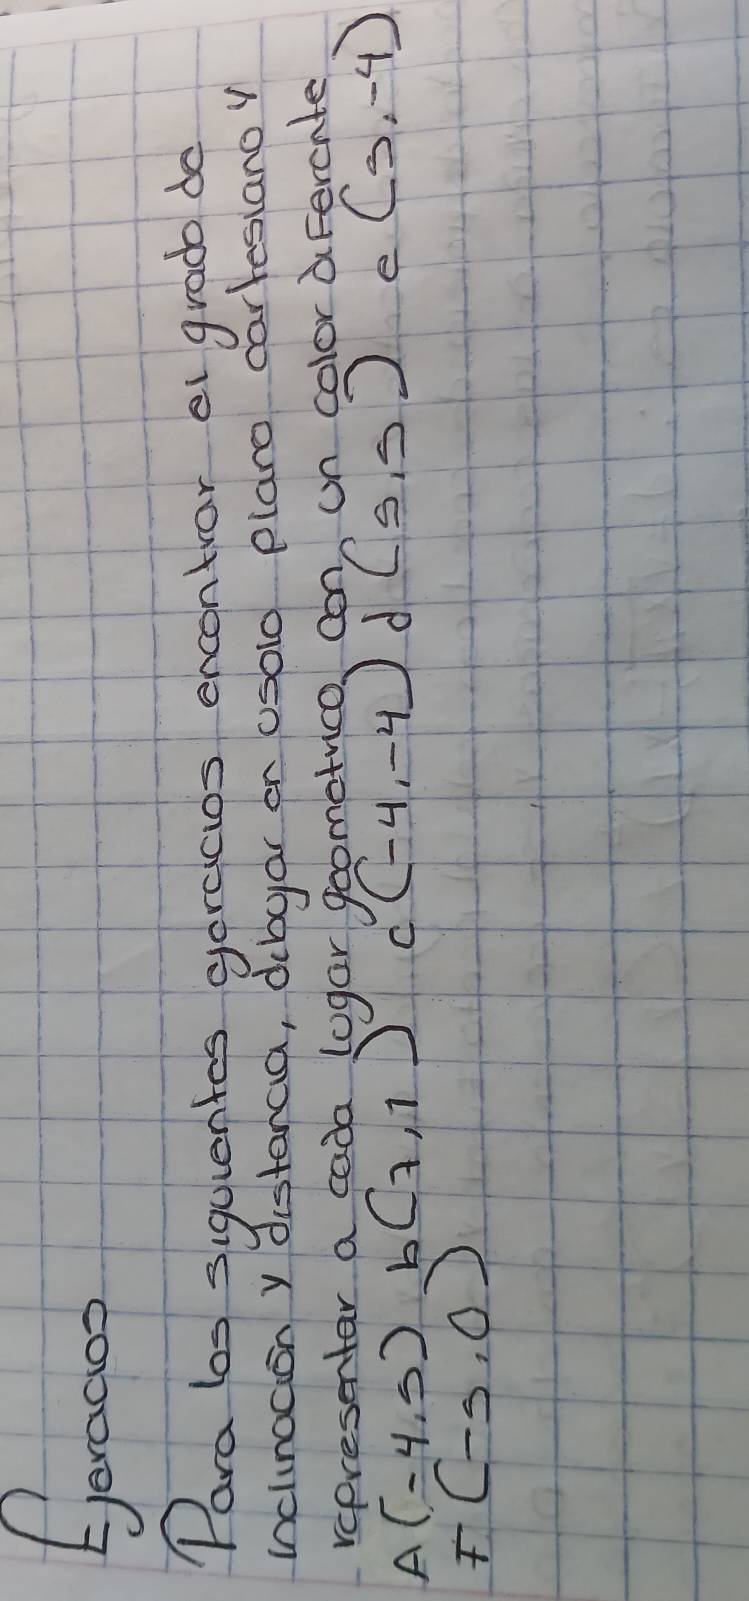 Ejercicios
Para los siguientes ejercicios encontrar el grado de
inclinación y distancia, dibujar en usolo plano cartesiano y
representar a cada lugar geometrico con un color diferente
A(-4,5) b(7,1) c(-4,-4) d(5,5) e(5,-4)
F(-5,0)